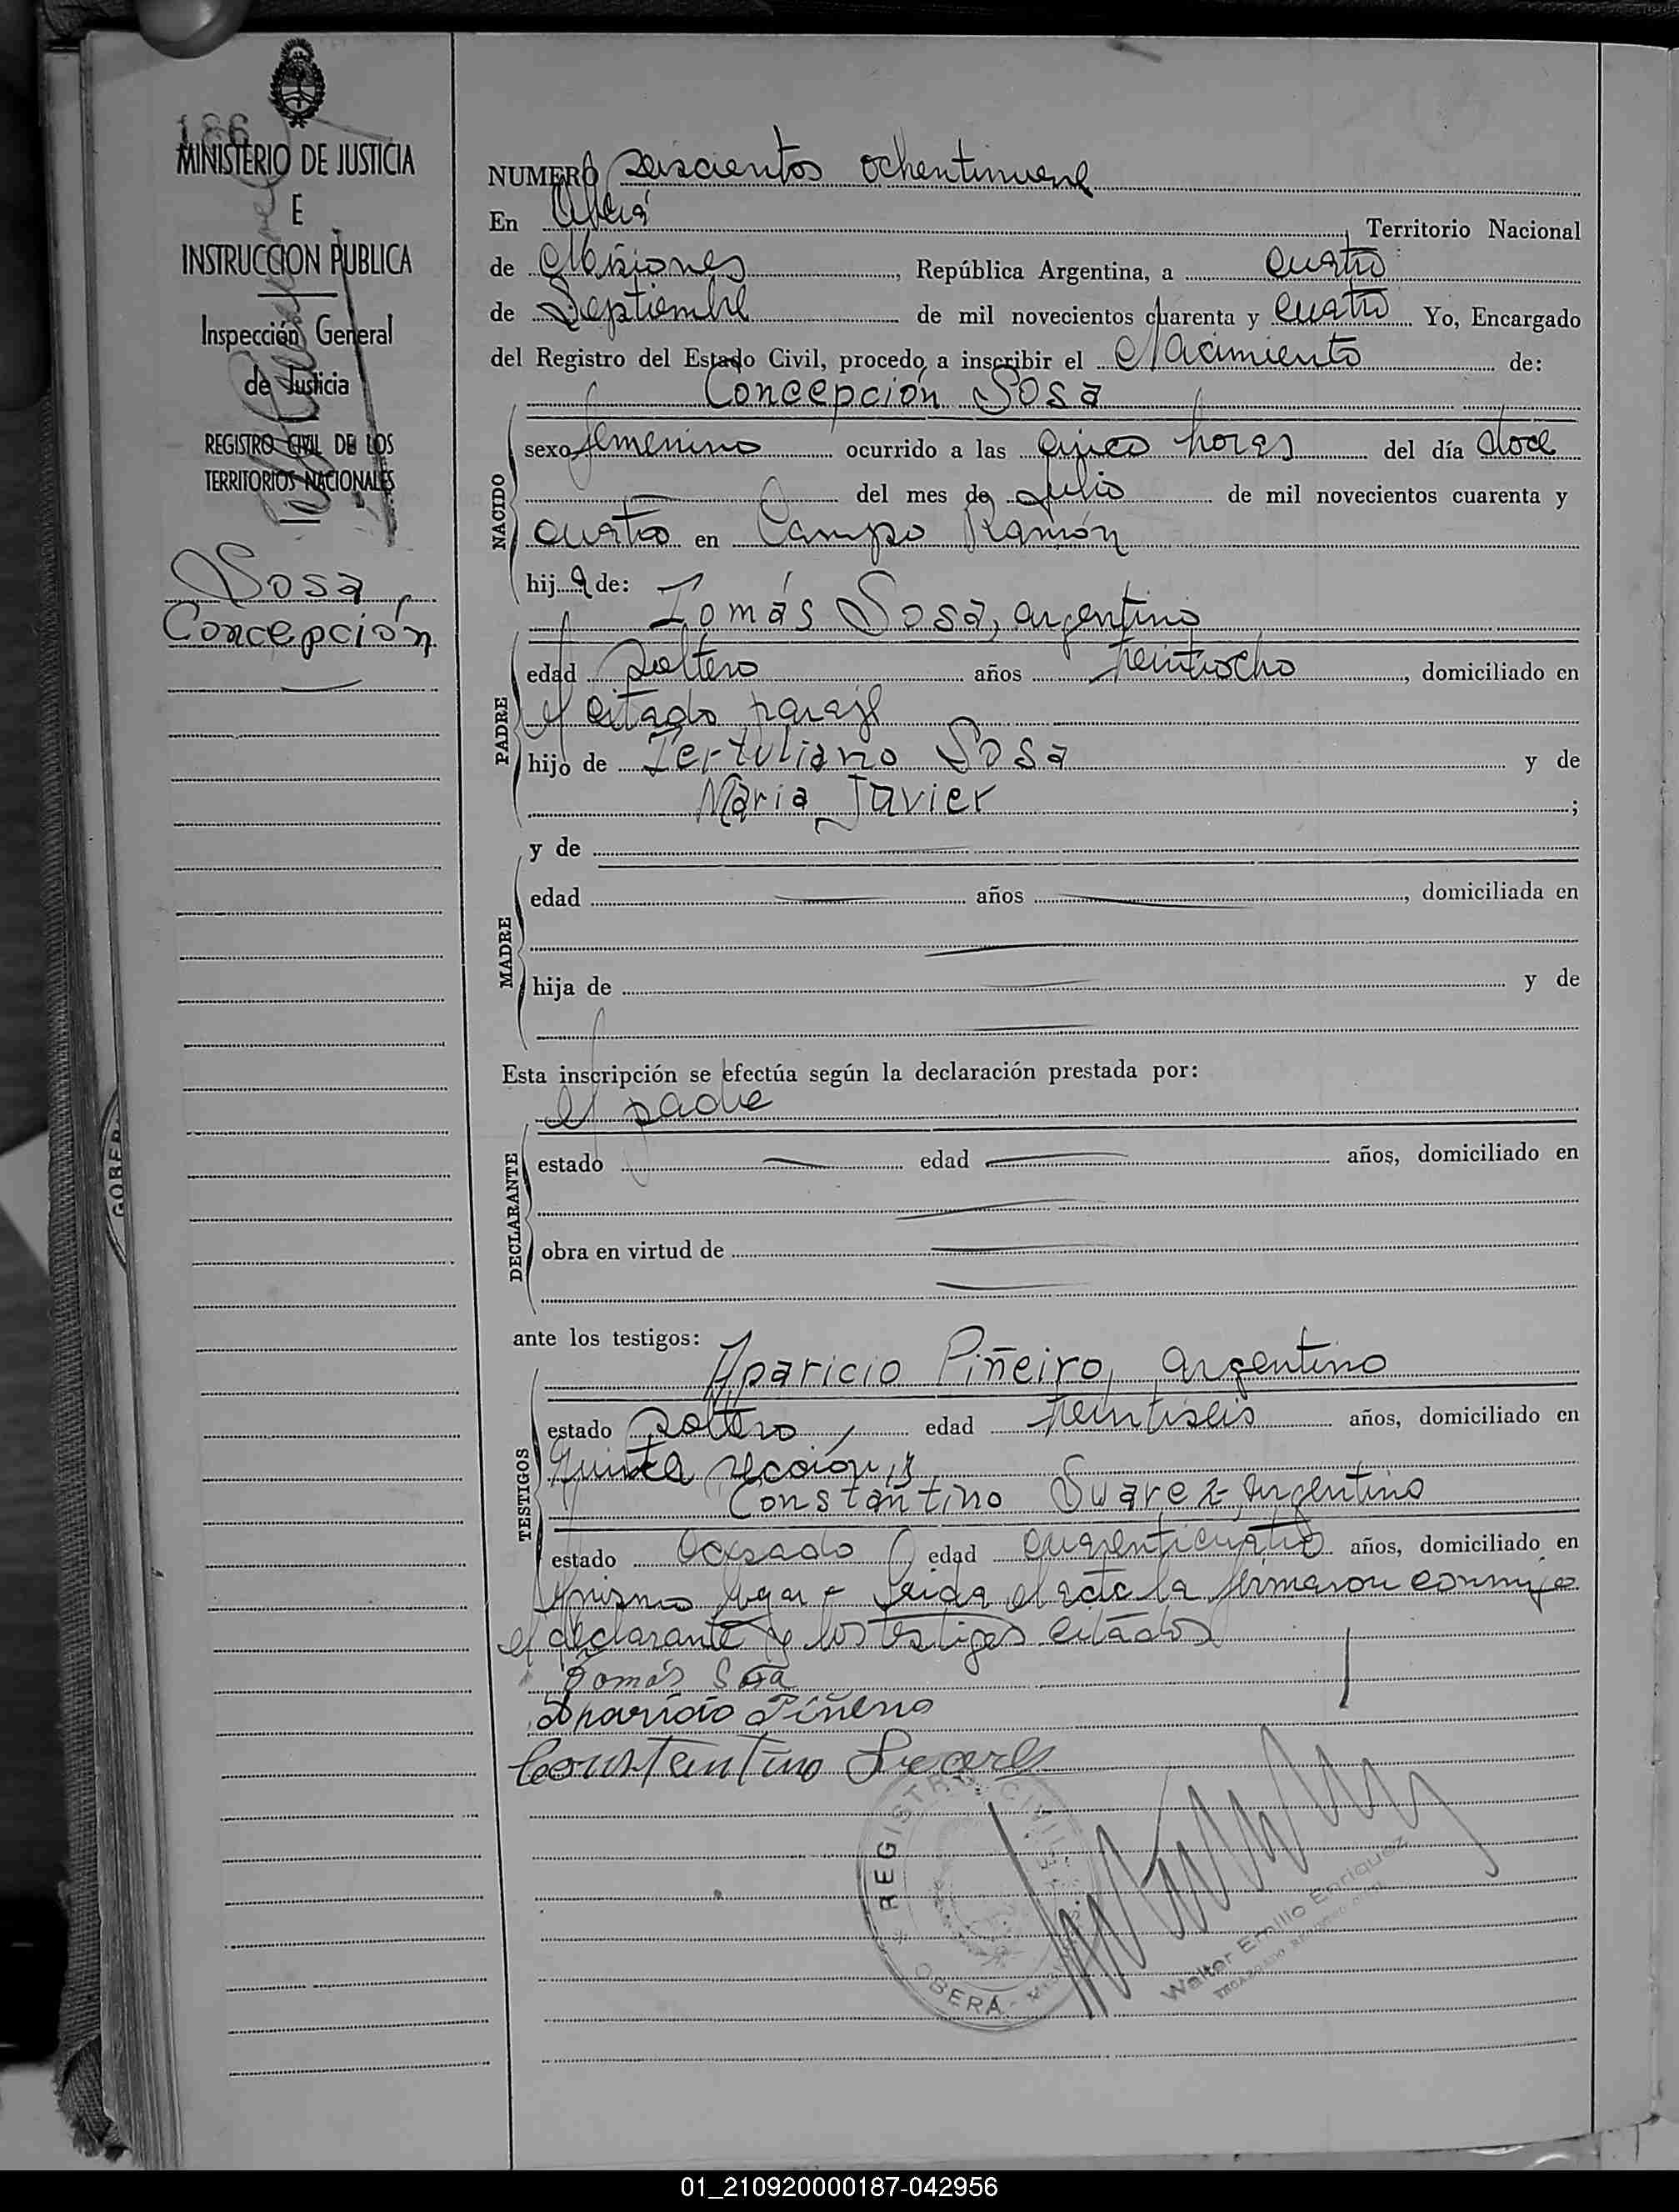 186
MINISTERIO DE JUSTICIA
E
INSTRUCCION PUBLICA
Inspección General
de Justicia
REGISTRO CIVIL DE LOS
TERRITORIOS NACIONALES
Sosa,
Concepción
NUMERO seiscientos ochentinueve
En Oberá, Territorio Nacional
de Misiones, República Argentina, a cuatro
de Septiembre de mil novecientos cuarenta y cuatro Yo, Encargado
del Registro del Estado Civil, procedo a inscribir el Nacimiento de:
Concepción Sosa
NACIDO
sexo femenino ocurrido a las cinco horas del día doce
del mes de Julio de mil novecientos cuarenta y
cuatro en Campo Ramón
hija de:
Tomás Sosa, argentino
PADRE
edad soltero años treintiocho, domiciliado en
el citado paraje
hijo de Tertuliano Sosa y de
María Javier;
y de
MADRE
edad años, domiciliada en
hija de y de
Esta inscripción se efectúa según la declaración prestada por:
el padre
DECLARANTE
estado edad años, domiciliado en
obra en virtud de
ante los testigos:
Aparicio Piñeiro, argentino
TESTIGOS
estado soltero edad treintiseis años, domiciliado en
Quinta sección y
Constantino Suarez, argentino
estado casado edad cuarenticuatro años, domiciliado en
mismo lugar Leida el acta la firmaron conmigo
el declarante y los testigos citados
Tomás Sosa
Aparicio Piñeiro
Constantino Suarez
REGISTRO CIVIL
OBERÁ -
Walter Emilio Enriquez
ENCARGADO REGISTRO CIVIL
GOBER
01_210920000187-042956